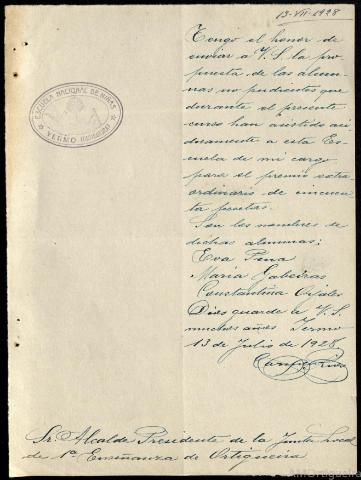 13-VII-1928
Tengo el honor de
enviar a V. S. la pro
puesta de las alum
nas no pudientes que
durante el presente
curso han asistido asi
duamente a esta Es
cuela de mi cargo
para el premio extra
ordinario de cincuen
ta pesetas.
Son los nombres de
dichas alumnas:
Eva Pena
María Gabeiras
Constantina
Dios guarde a V. S.
muchos años Yermo
13 de Julio de 1928
ESCUELA NACIONAL DE NIÑAS
YERMO
Sr. Alcalde Presidente de la Junta Local
de 1ª Enseñanza de Ortigueira
AMOrtigueira